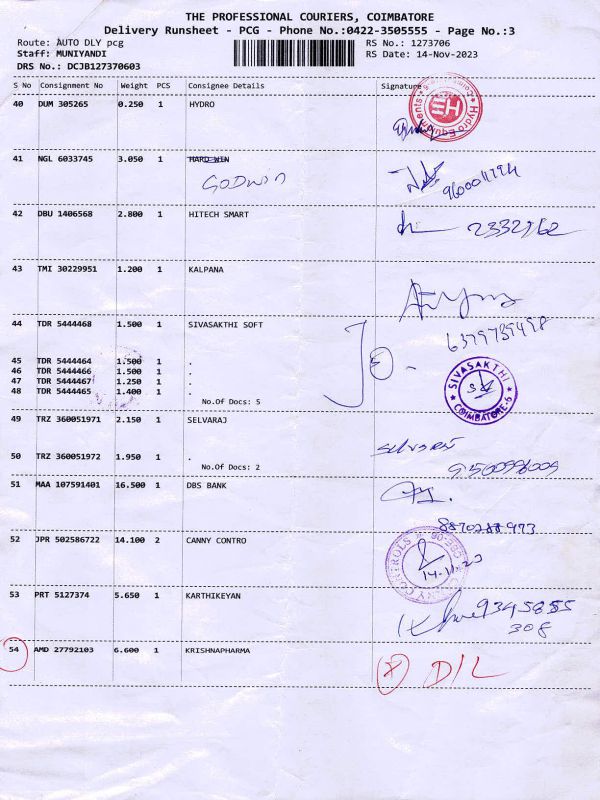 THE PROFESSIONAL COURIERS, COIMBATORE
Delivery Runsheet - PCG - Phone No.:0422-3505555 - Page No.:3
Route: AUTO DLY pcg RS No.: 1273706
Staff: MUNIYANDI RS Date: 14-Nov-2023
DRS No.: DCJB127370603
S No Consignment No Weight PCS Consignee Details Signature
40 DUM 305265 0.250 1 HYDRO
Hydro Equipments
HE
41 NGL 6033745 3.050 1 HARD WIN
GODWIN
42 DBU 1406568 2.800 1 HITECH SMART
2332962
43 TMI 30229951 1.200 1 KALPANA
44 TDR 5444468 1.500 1 SIVASAKTHI SOFT
6379739498
45 TDR 5444464 1.500 1 .
46 TDR 5444466 1.500 1 .
47 TDR 5444467 1.250 1 .
48 TDR 5444465 1.400 1 .
No.Of Docs: 5
SIVASAKTHI
COIMBATORE-6
49 TRZ 360051971 2.150 1 SELVARAJ
50 TRZ 360051972 1.950 1 .
No.Of Docs: 2
51 MAA 107591401 16.500 1 DBS BANK
52 JPR 502586722 14.100 2 CANNY CONTRO
CANNY CONTROLS
14-11-23
53 PRT 5127374 5.650 1 KARTHIKEYAN
9345855
308
54 AMD 27792103 6.600 1 KRISHNAPHARMA
D/L